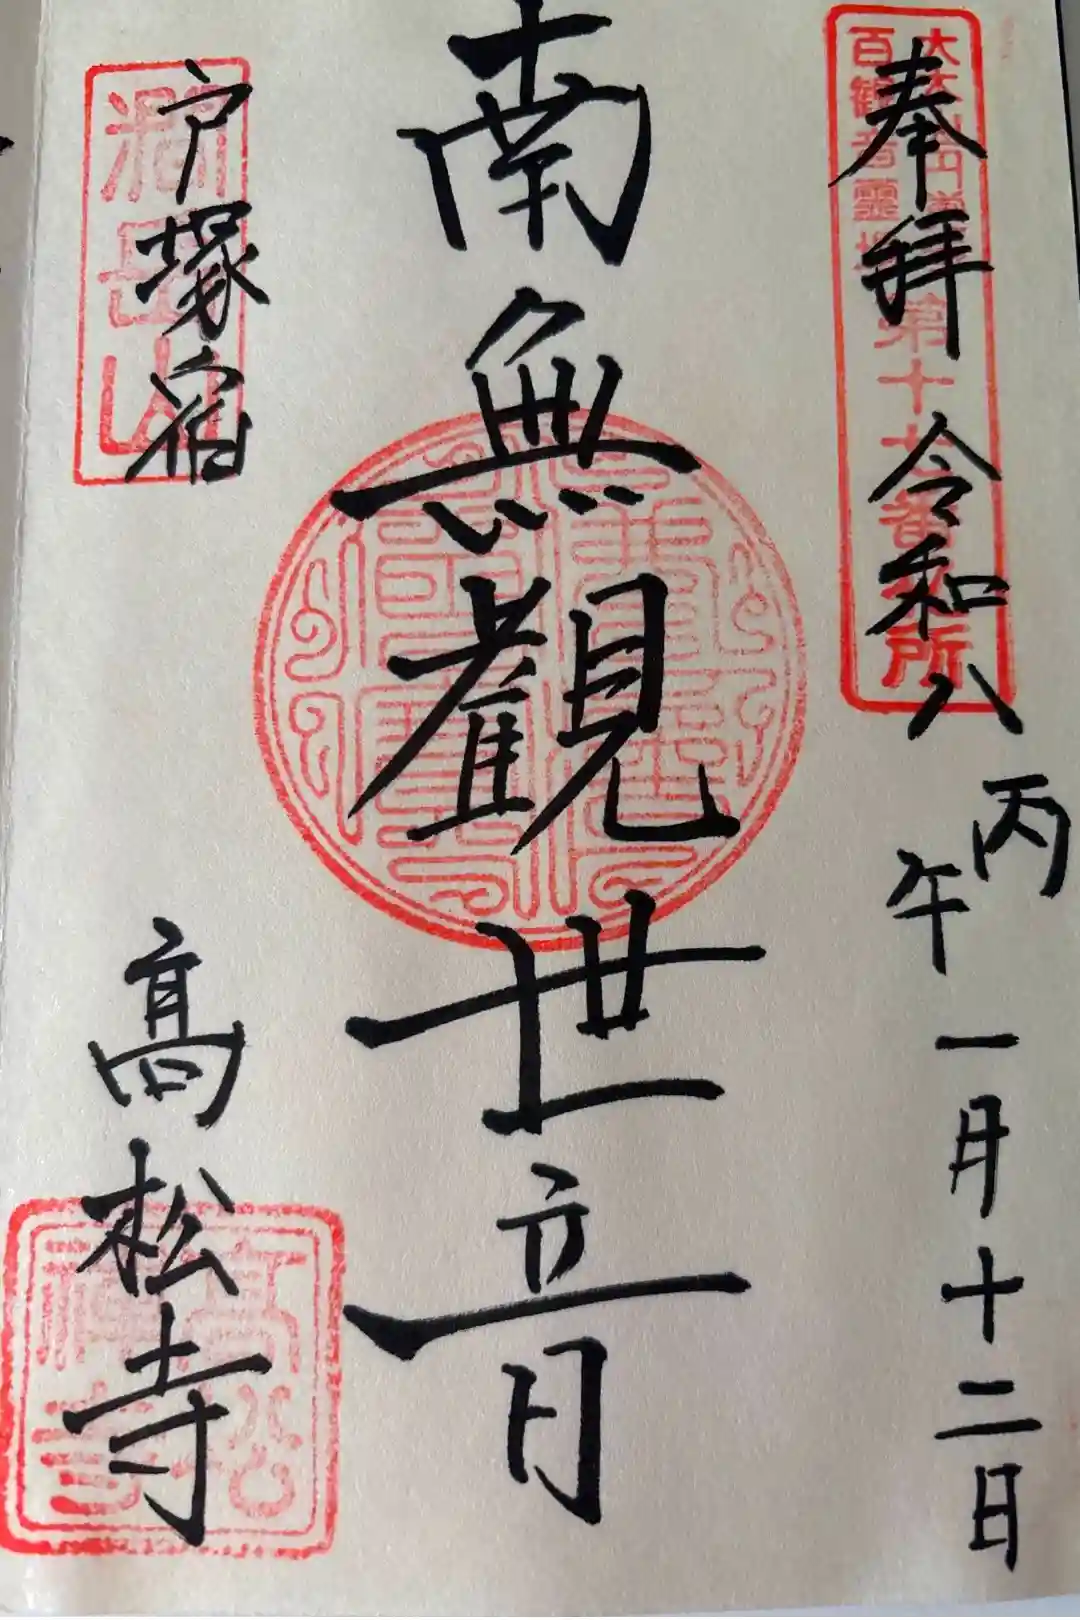 奉拜 令和八 丙午 一月十二日
百観音霊場
第十七番
所
南無觀世音
戸塚宿
高松寺